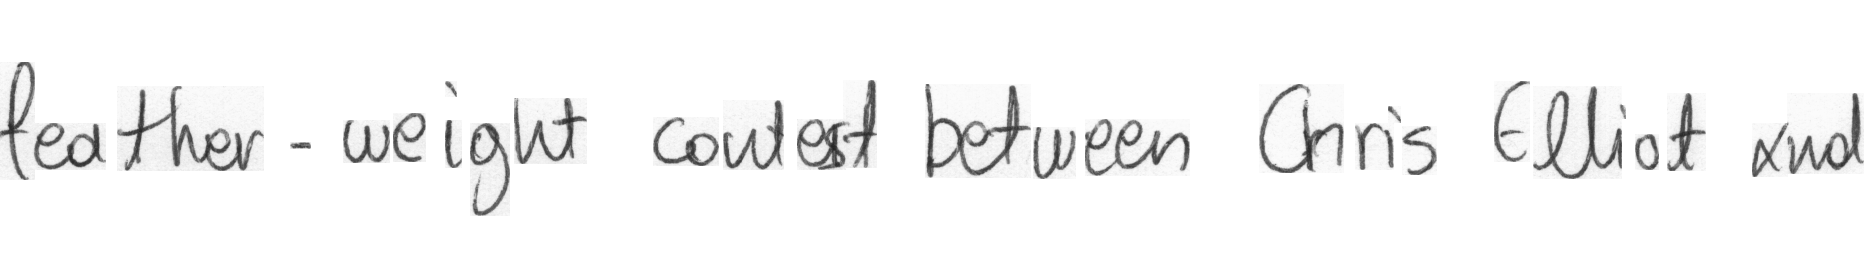 feather - weight contest between Chris Elliot and